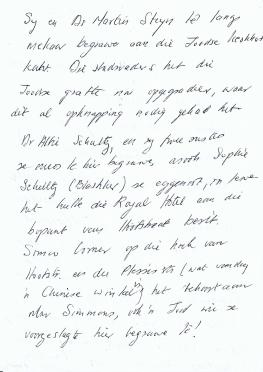 Sy en Dr Martin Steyn lê langs
mekaar begrawe aan die Joodse
kant. Die stadsvaders het die
Joodse grafte nou opgegradeer, waar
dit al opknapping nodig gehad het.
Dr Alkie Schultz, en sy twee susters
se ouers lê hier begrawe asook Sophie
Schultz se eggenoot, in lewe
het hulle die Royal Hotel aan die
bopunt van Hoofstraat besit.
Simon Corner op die hoek van
Hoofstr. en du Plessis str (wat vandag
'n Chinese winkel is) het behoort aan
Mnr Simmons, ook 'n Jood wie se
voorgeslagte hier begrawe lê!